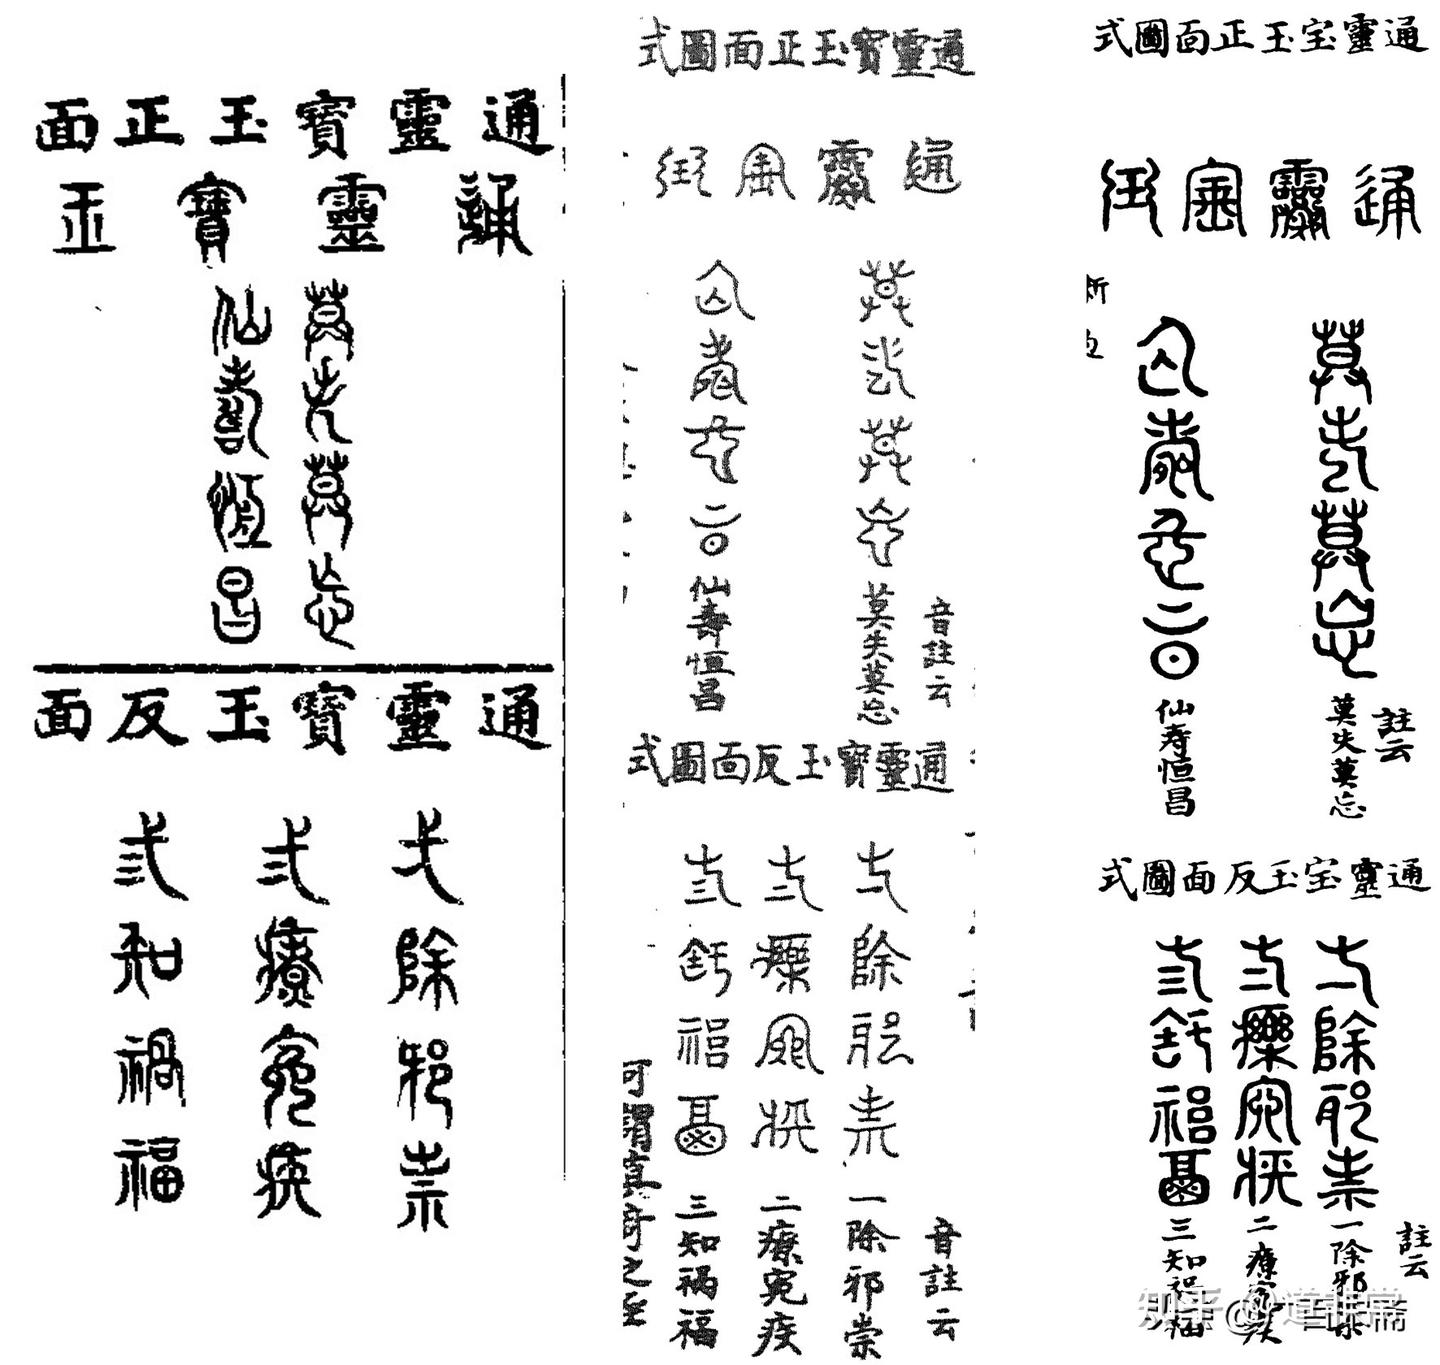 通靈寶玉正面
通靈寶玉
莫失莫忘
仙壽恆昌
通靈寶玉反面
弌除邪祟
弍療冤疾
弎知禍福
通靈寶玉正面圖式
通靈寶玉
莫失莫忘
仙壽恆昌
音註云
莫失莫忘
仙壽恒昌
通靈寶玉反面圖式
弌除邪祟
弍療冤疾
弎知禍福
音註云
一除邪崇
二療冤疾
三知禍福
可謂真奇之至
通靈宝玉正面圖式
通靈寶玉
莫失莫忘
仙壽恆昌
註云
莫失莫忘
仙寿恒昌
通靈宝玉反面圖式
弌除邪祟
弍療冤疾
弎知禍福
註云
一除邪
二療疾
三知福
知乎